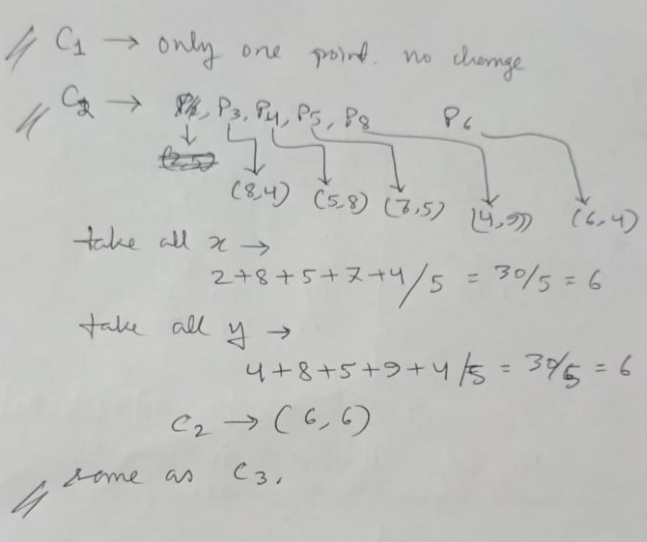 C1 → only one point. no change
C2 → P3, P4, P5, P8 P6
(2,5)
(8,4) (5,8) (7,5) (4,9) (6,4)
take all x →
2+8+5+7+4/5 = 30/5 = 6
take all y →
4+8+5+9+4/5 = 30/5 = 6
C2 → (6,6)
same as C3.